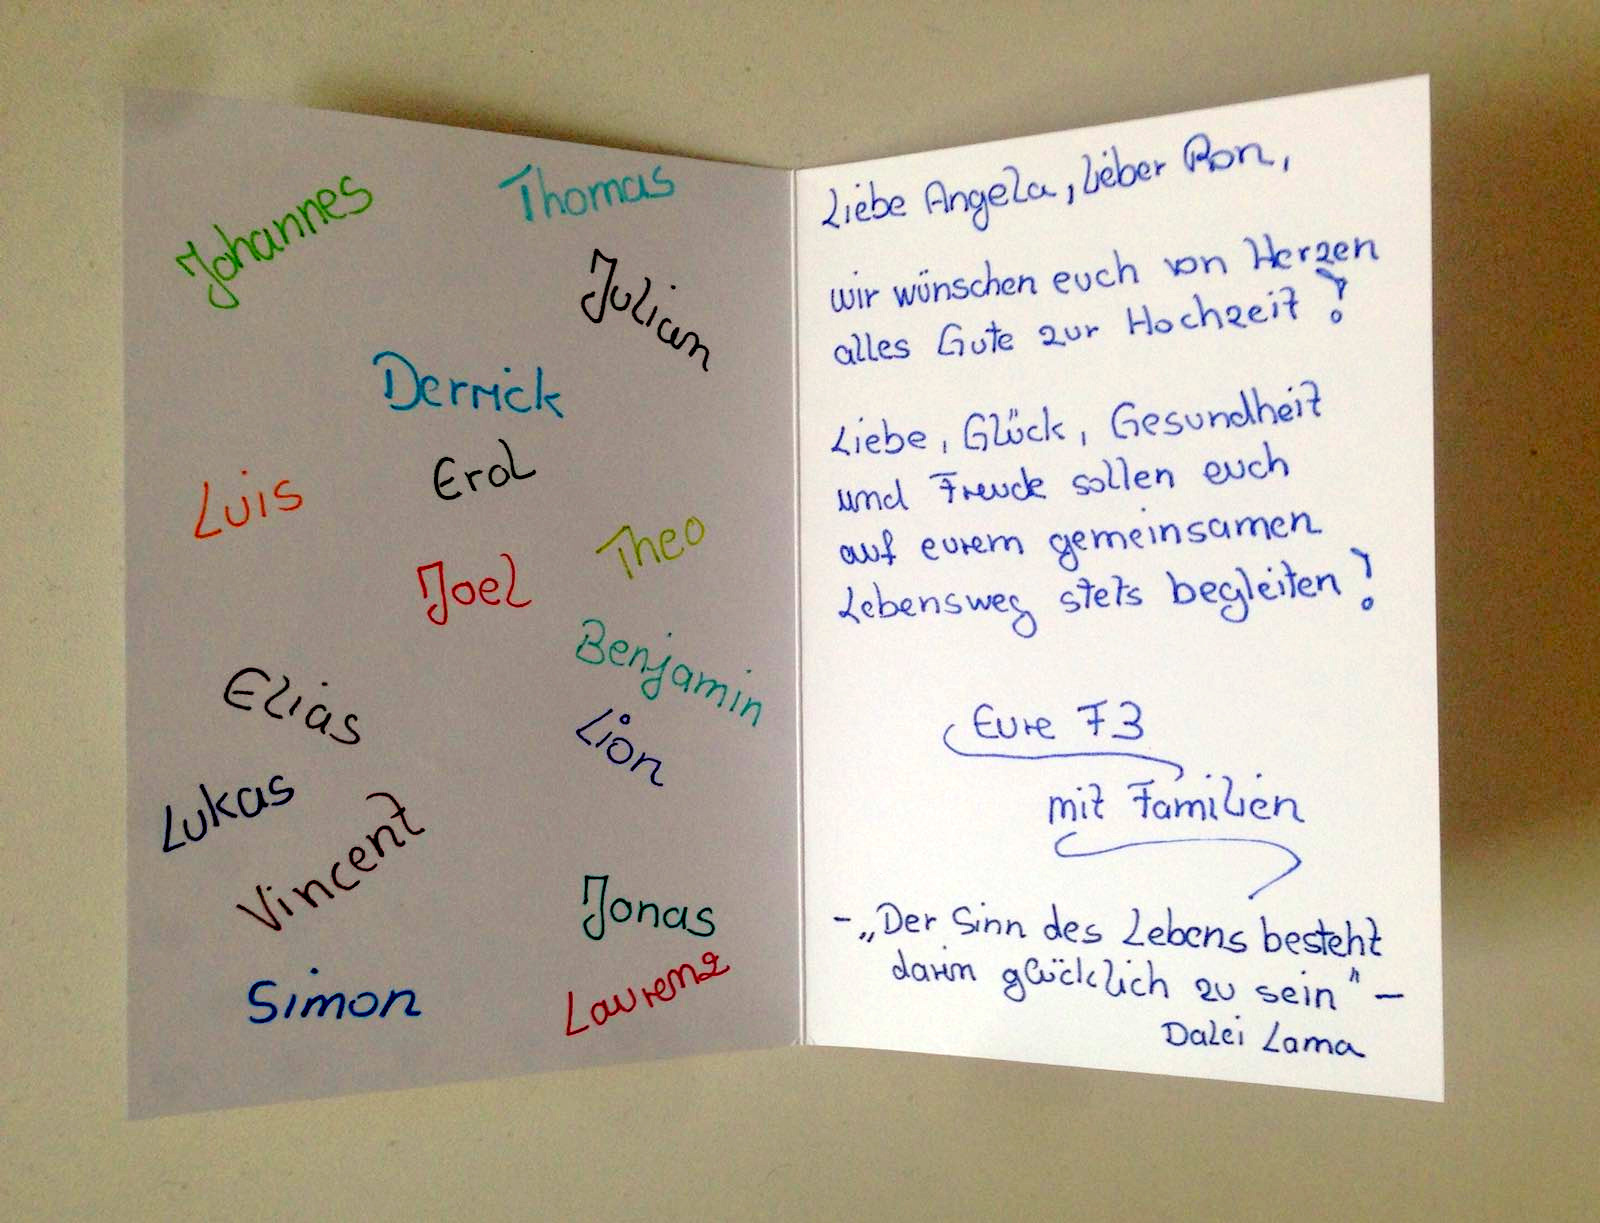 Johannes
Thomas
Julian
Derrick
Erol
Luis
Theo
Joel
Benjamin
Elias
Lion
Lukas
Vincent
Jonas
Simon
Laurenz
Liebe Angela, lieber Ron,
wir wünschen euch von Herzen
alles Gute zur Hochzeit!
Liebe, Glück, Gesundheit
und Freude sollen euch
auf eurem gemeinsamen
Lebensweg stets begleiten!
Eure F3
mit Familien
- „Der Sinn des Lebens besteht
darin glücklich zu sein" -
Dalei Lama